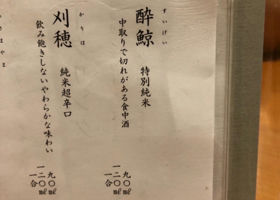 すいげい
酔鯨 特別純米
中取りで切れがある食中酒
九〇㎖
一二〇㎖
一合
かりほ
刈穂 純米超辛口
飲み飽きしないやわらかな味わい
九〇㎖
一二〇㎖
一合